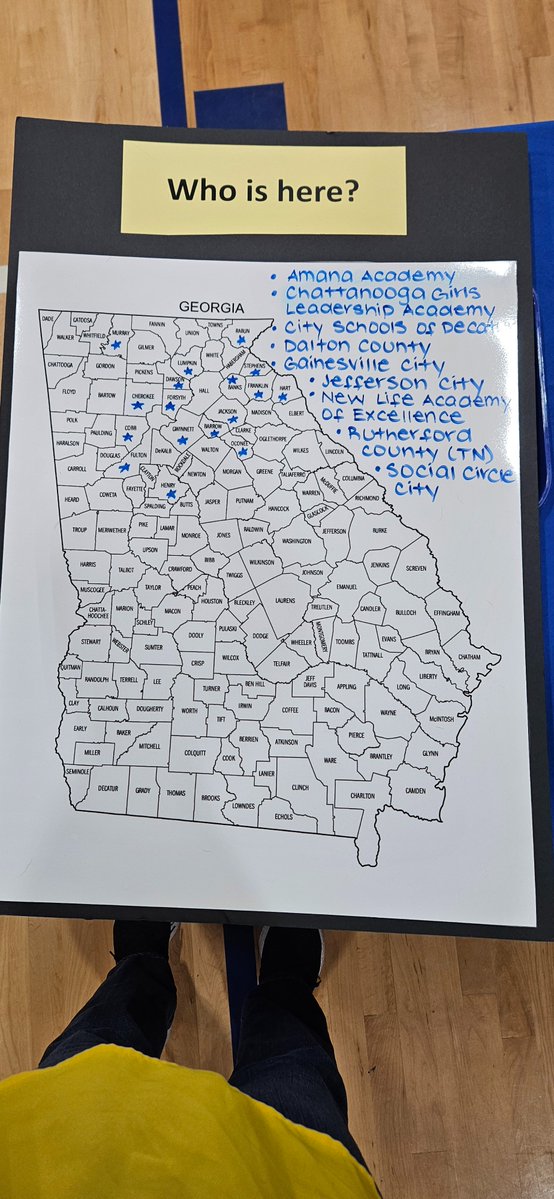 Who is here?
GEORGIA
• Amana Academy
• Chattanooga Girls
Leadership Academy
• City Schools of Decatur
• Dalton County
• Gainesville City
• Jefferson City
• New Life Academy
of Excellence
• Rutherford
County (TN)
• Social Circle
City
DADE CATOOSA FANNIN TOWNS RABUN
WALKER WHITFIELD MURRAY UNION
GILMER WHITE HABERSHAM
CHATTOOGA GORDON PICKENS LUMPKIN STEPHENS
DAWSON BANKS FRANKLIN HART
FLOYD BARTOW CHEROKEE FORSYTH HALL
JACKSON MADISON ELBERT
POLK COBB GWINNETT BARROW CLARKE
PAULDING OCONEE OGLETHORPE
HARALSON DOUGLAS FULTON DeKALB WALTON WILKES LINCOLN
CARROLL CLAYTON ROCKDALE NEWTON MORGAN GREENE TALIAFERRO McDUFFIE COLUMBIA
FAYETTE HENRY WARREN RICHMOND
HEARD COWETA SPALDING BUTTS JASPER PUTNAM HANCOCK GLASCOCK
TROUP MERIWETHER PIKE LAMAR MONROE JONES BALDWIN WASHINGTON JEFFERSON BURKE
UPSON
HARRIS TALBOT CRAWFORD BIBB TWIGGS WILKINSON JOHNSON JENKINS SCREVEN
MUSCOGEE TAYLOR PEACH EMANUEL
CHATTA-
HOOCHEE MARION MACON HOUSTON BLECKLEY LAURENS TREUTLEN CANDLER BULLOCH EFFINGHAM
SCHLEY
STEWART WEBSTER SUMTER DOOLY PULASKI DODGE WHEELER MONTGOMERY TOOMBS EVANS BRYAN CHATHAM
TATTNALL
QUITMAN CRISP WILCOX TELFAIR LIBERTY
RANDOLPH TERRELL LEE TURNER BEN HILL JEFF
DAVIS APPLING LONG
CLAY CALHOUN DOUGHERTY WORTH TIFT IRWIN COFFEE BACON WAYNE McINTOSH
EARLY BAKER MITCHELL BERRIEN ATKINSON PIERCE
MILLER COLQUITT COOK WARE BRANTLEY GLYNN
SEMINOLE LANIER CLINCH
DECATUR GRADY THOMAS BROOKS LOWNDES CHARLTON CAMDEN
ECHOLS